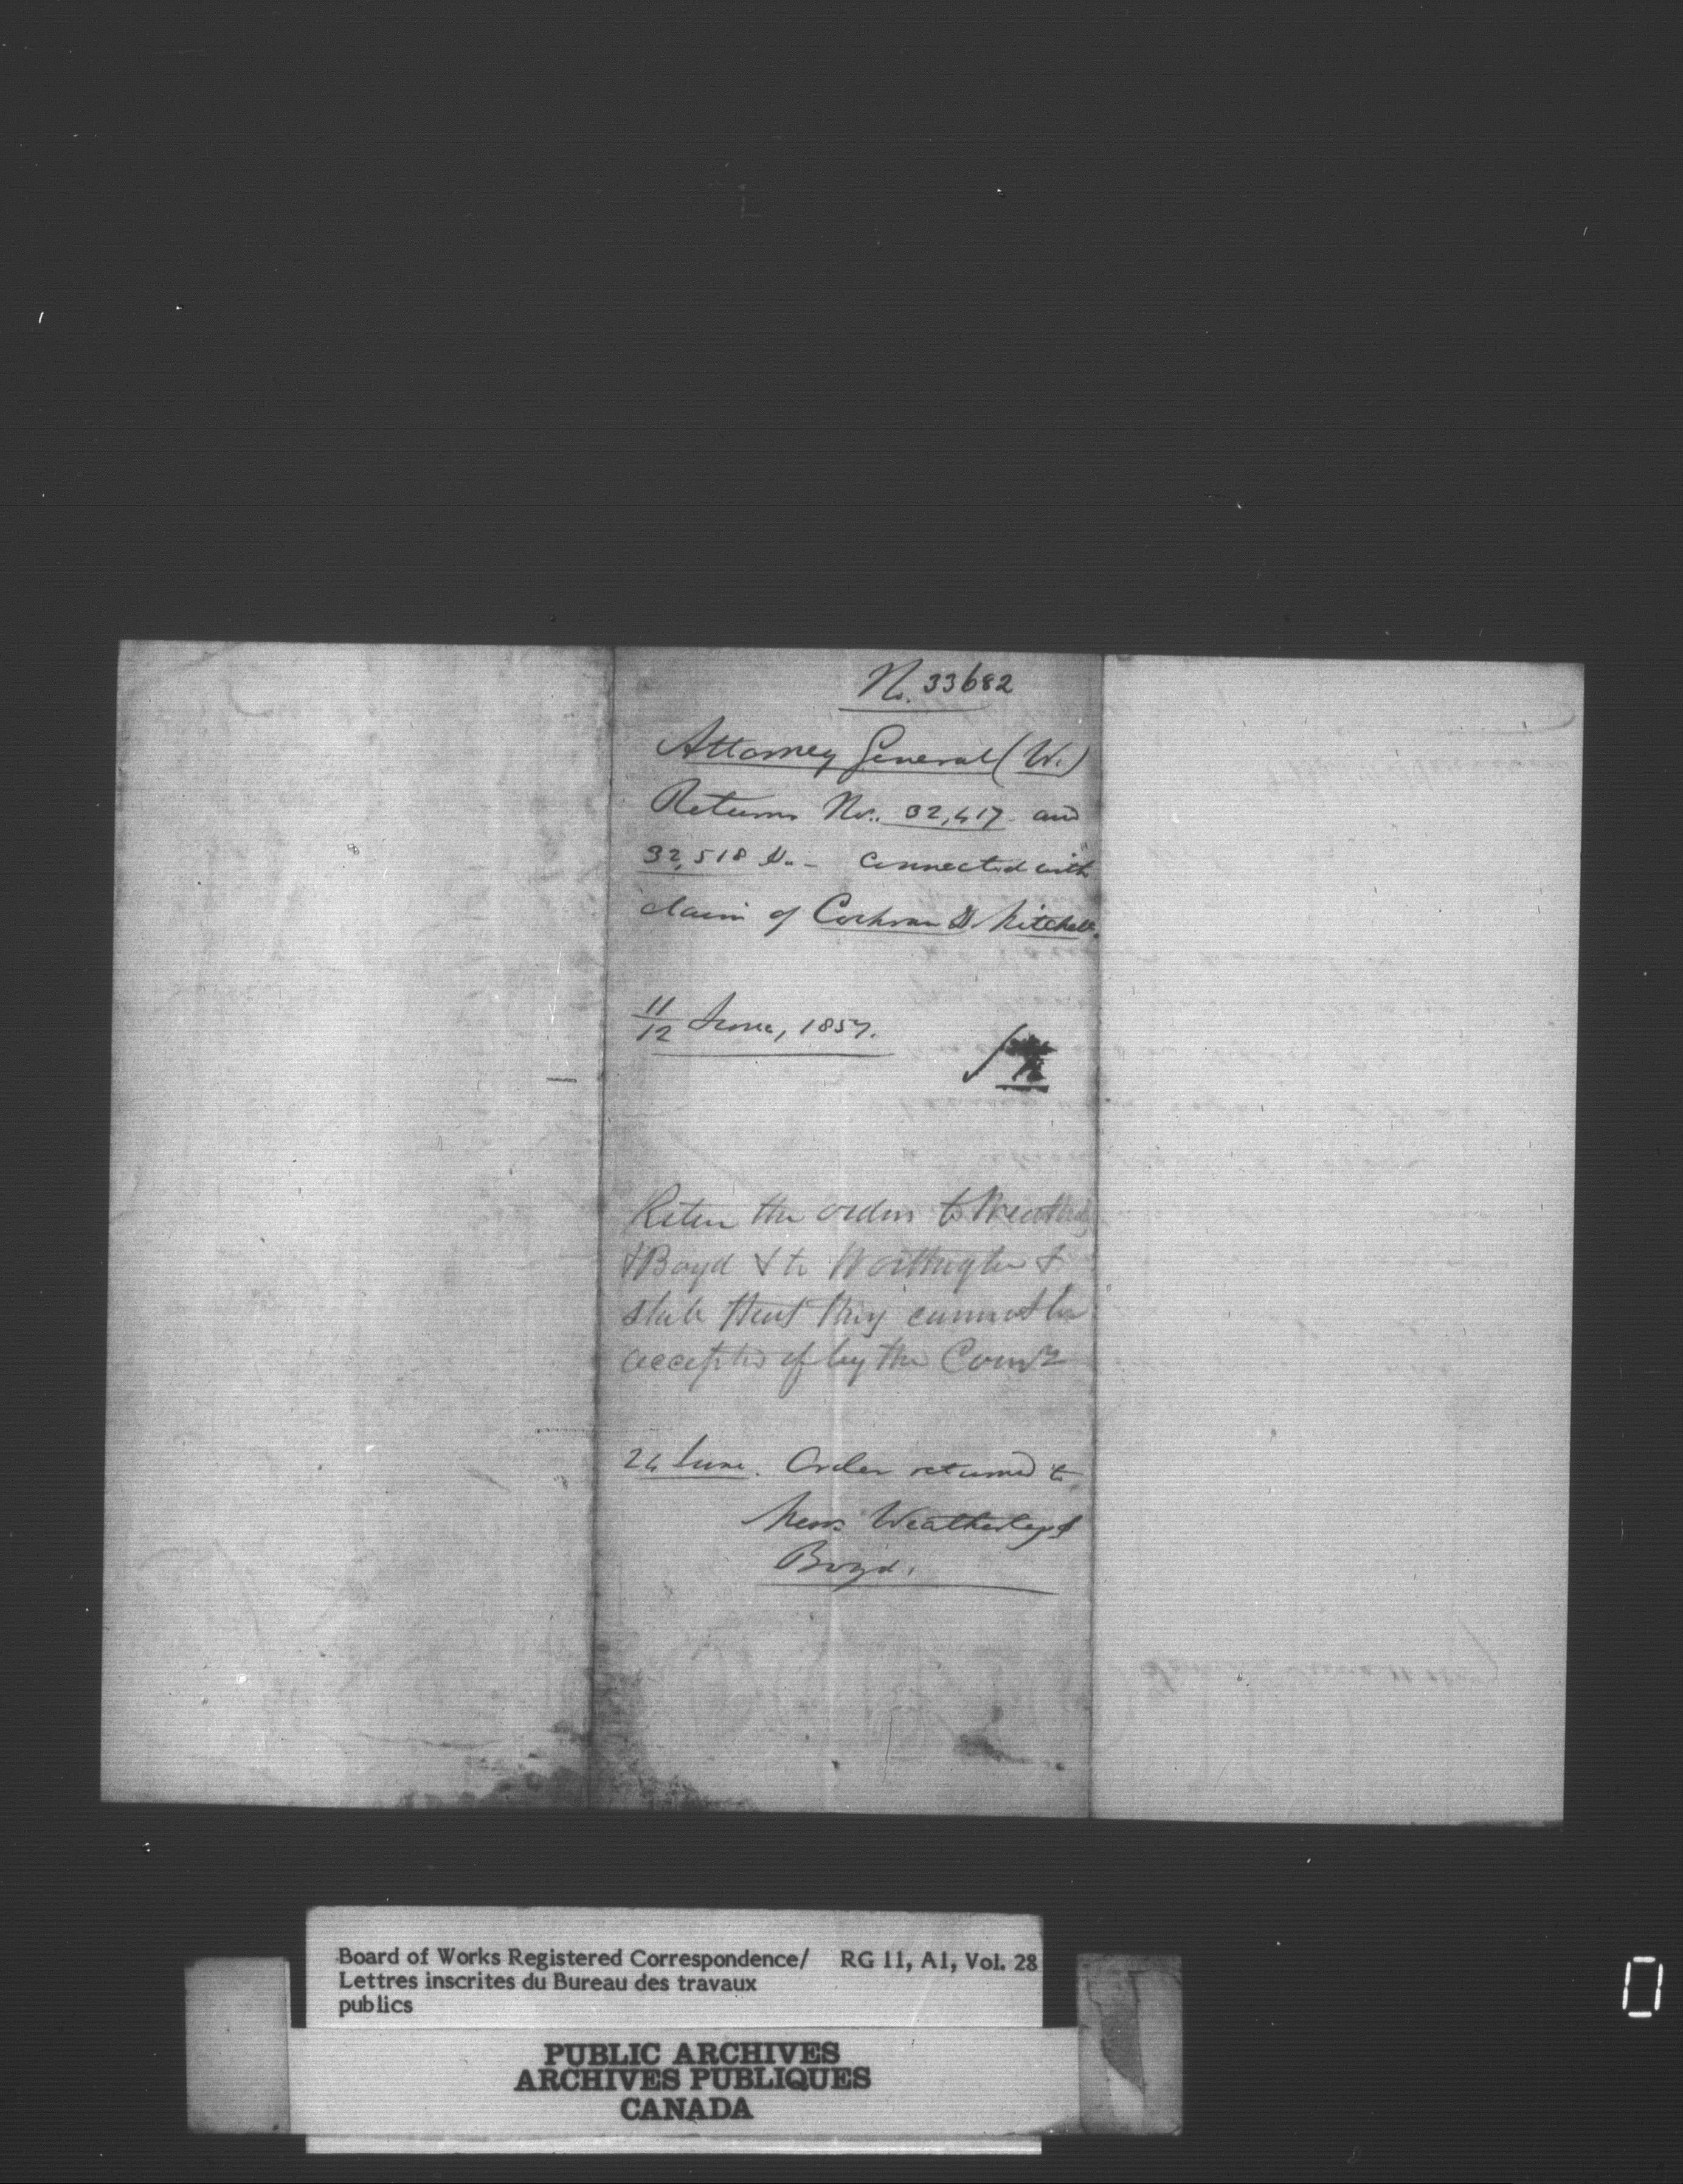 No. 33682
Attorney General (W.)
Returns Nos. 32,417 and
32,518 connected with
claim of Cochran & Mitchell.
11/12 June, 1857.
Return the orders to Weatherley
& Boyd & to Worthington &
state that they cannot be
accepted of by the Comrs
24 June. Order returned to
Messrs Weatherley &
Boyd.
Board of Works Registered Correspondence/ RG 11, A1, Vol. 28
Lettres inscrites du Bureau des travaux
publics
PUBLIC ARCHIVES
ARCHIVES PUBLIQUES
CANADA